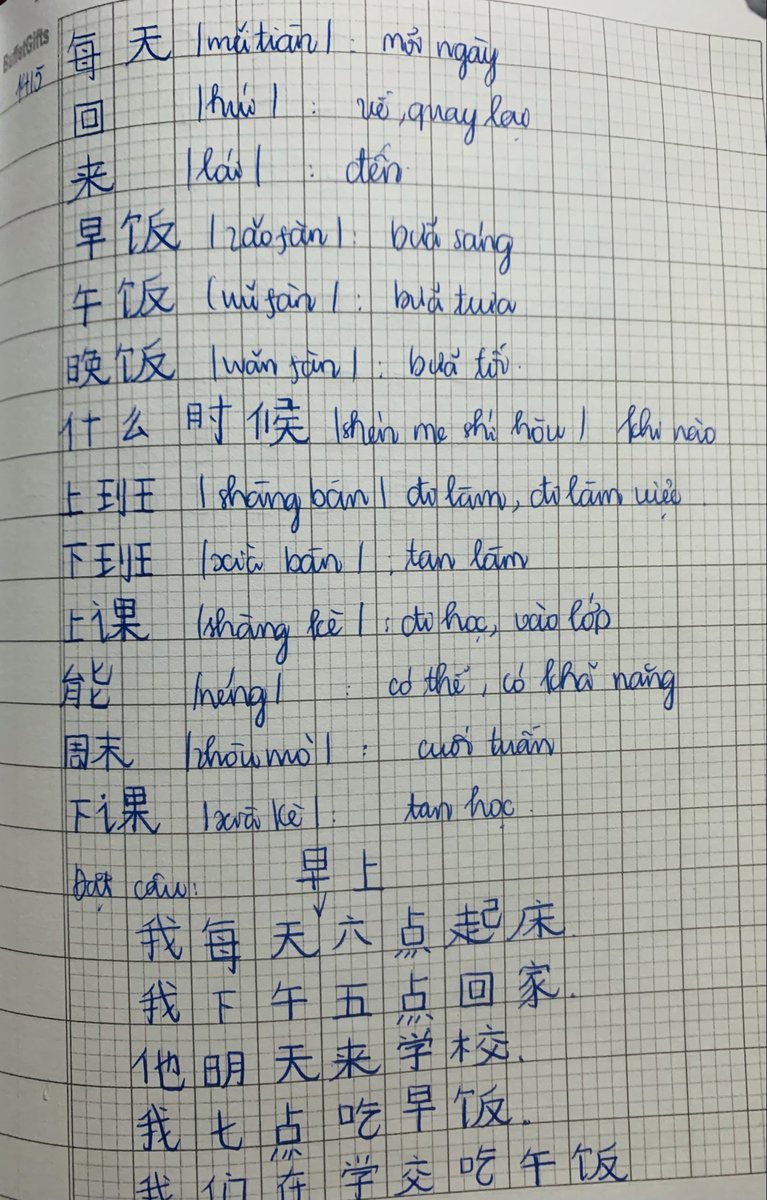 BuffetGifts
14/5
每天 |měi tiān| : mỗi ngày
回 |huí| : về, quay lại
来 |lái| : đến
早饭 |zǎo fàn| : bữa sáng
午饭 (wǔ fàn| : bữa trưa
晚饭 |wǎn fàn| : bữa tối.
什么时候 |shén me shí hòu| khi nào
上班 |shàng bān| đi làm, đi làm việc
下班 |xià bān| : tan làm
上课 |shàng kè| : đi học, vào lớp
能 |néng| : có thể, có khả năng
周末 |zhōu mò| : cuối tuần
下课 |xià kè| : tan học.
Đặt câu: 早上
我每天六点起床.
我下午五点回家.
他明天来学校.
我七点吃早饭.
我们在学交吃午饭